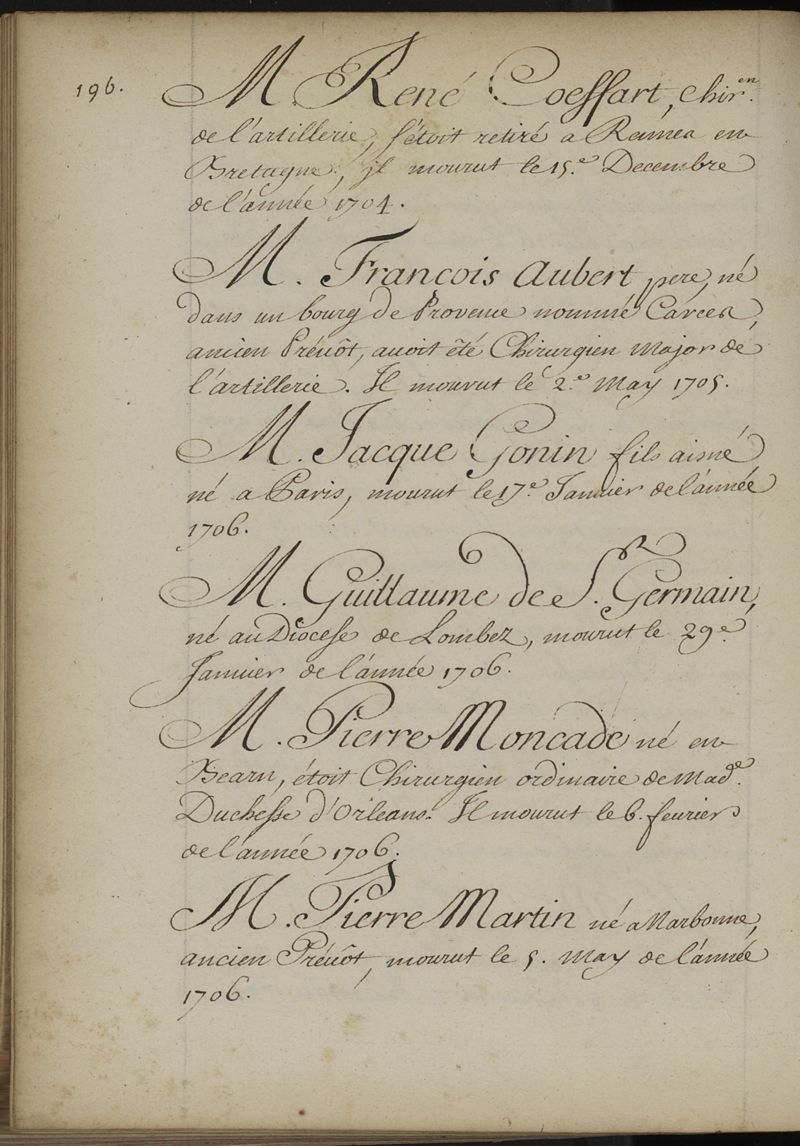 196.
M. René Coeffart, Chir.en
de l'artillerie, s'étoit retiré a Rennes en
Bretagne, jl mourut le 15.e Decembre
de l'année 1704.
M. François Aubert pere, né
dans un bourg de Provence nommé Carces,
ancien Prévôt, avoit êté Chirurgien Major de
l'artillerie. Il mourut le 2.e May 1705.
M. Jacque Gonin fils aisné
né a Paris, mourut le 17.e Janvier de l'année
1706.
M. Guillaume de St. Germain,
né au Diocese de Lombez, mourut le 29.e
Janvier de l'année 1706.
M. Pierre Moncade né en
Bearn, étoit Chirurgien ordinaire de Mad.e
Duchesse d'Orleans. Il mourut le 6. fevrier
de l'année 1706.
M. Pierre Martin né a Narbonne,
ancien Prévôt, mourut le 5. May de l'année
1706.